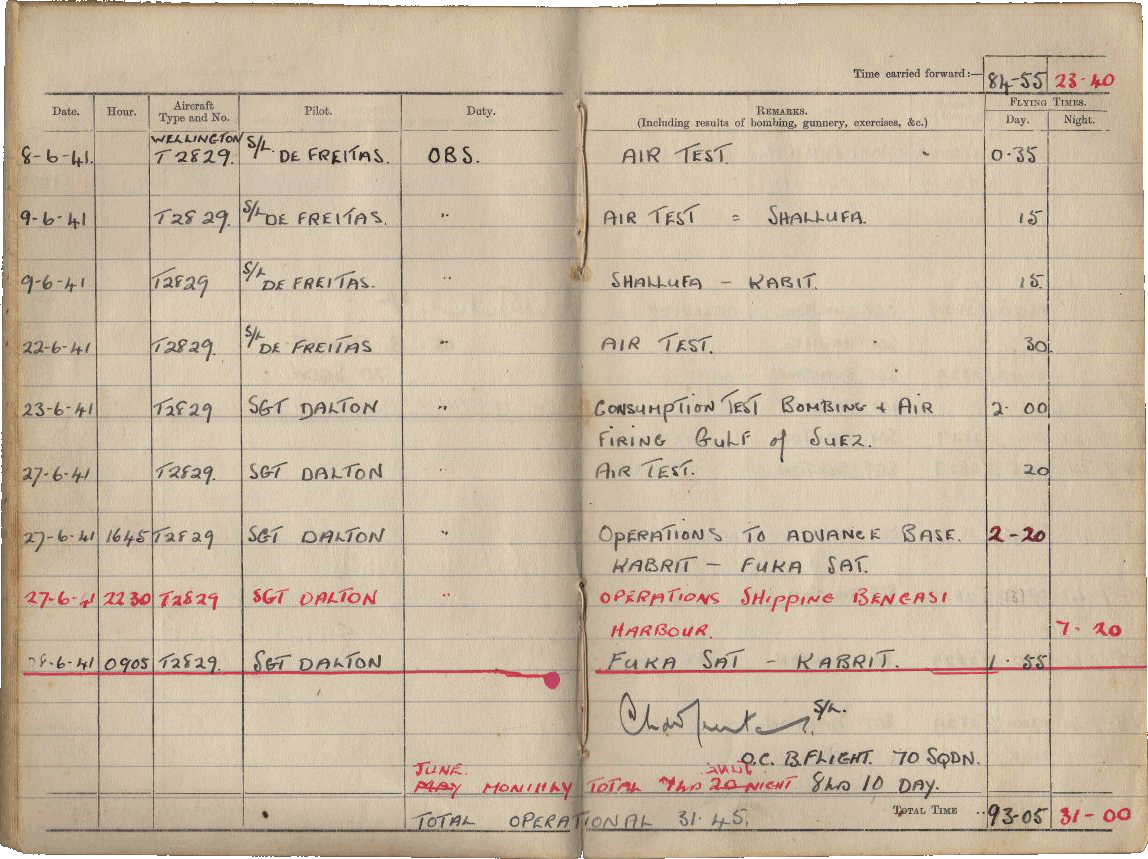 Time carried forward:— 84-55 23-40
Date. Hour. Aircraft Type and No. Pilot. Duty. REMARKS. (Including results of bombing, gunnery, exercises, &c.) FLYING TIMES. Day. Night.
WELLINGTON
8-6-41. T2829. S/L. DE FREITAS. OBS. AIR TEST. 0.35
9-6-41 T2829. S/L DE FREITAS. " AIR TEST = SHALLUFA. 15
9-6-41 T2829 S/L DE FREITAS. " SHALLUFA - KABIT. 15.
22-6-41 T2829. S/L DE FREITAS " AIR TEST. 30
23-6-41 T2829 SGT DALTON " CONSUMPTION TEST BOMBING + AIR 2. 00
FIRING GULF of SUEZ.
27-6-41 T2829. SGT DALTON AIR TEST. 20
27-6-41 1645 T2829 SGT DALTON " OPERATIONS TO ADVANCE BASE. 2-20
KABRIT - FUKA SAT.
27-6-41 2230 T2829 SGT DALTON " OPERATIONS SHIPPING BENGASI
HARBOUR. 7-20
28-6-41 0905 T2829. SGT DALTON FUKA SAT - KABRIT. 1.55
S/L.
O.C. B.FLIGHT. 70 SQDN.
JUNE.
MAY MONTHLY TOTAL 7hrs 20 NIGHT 8hrs 10 DAY.
TOTAL OPERATIONAL 31.45. TOTAL TIME .. 93-05 31-00